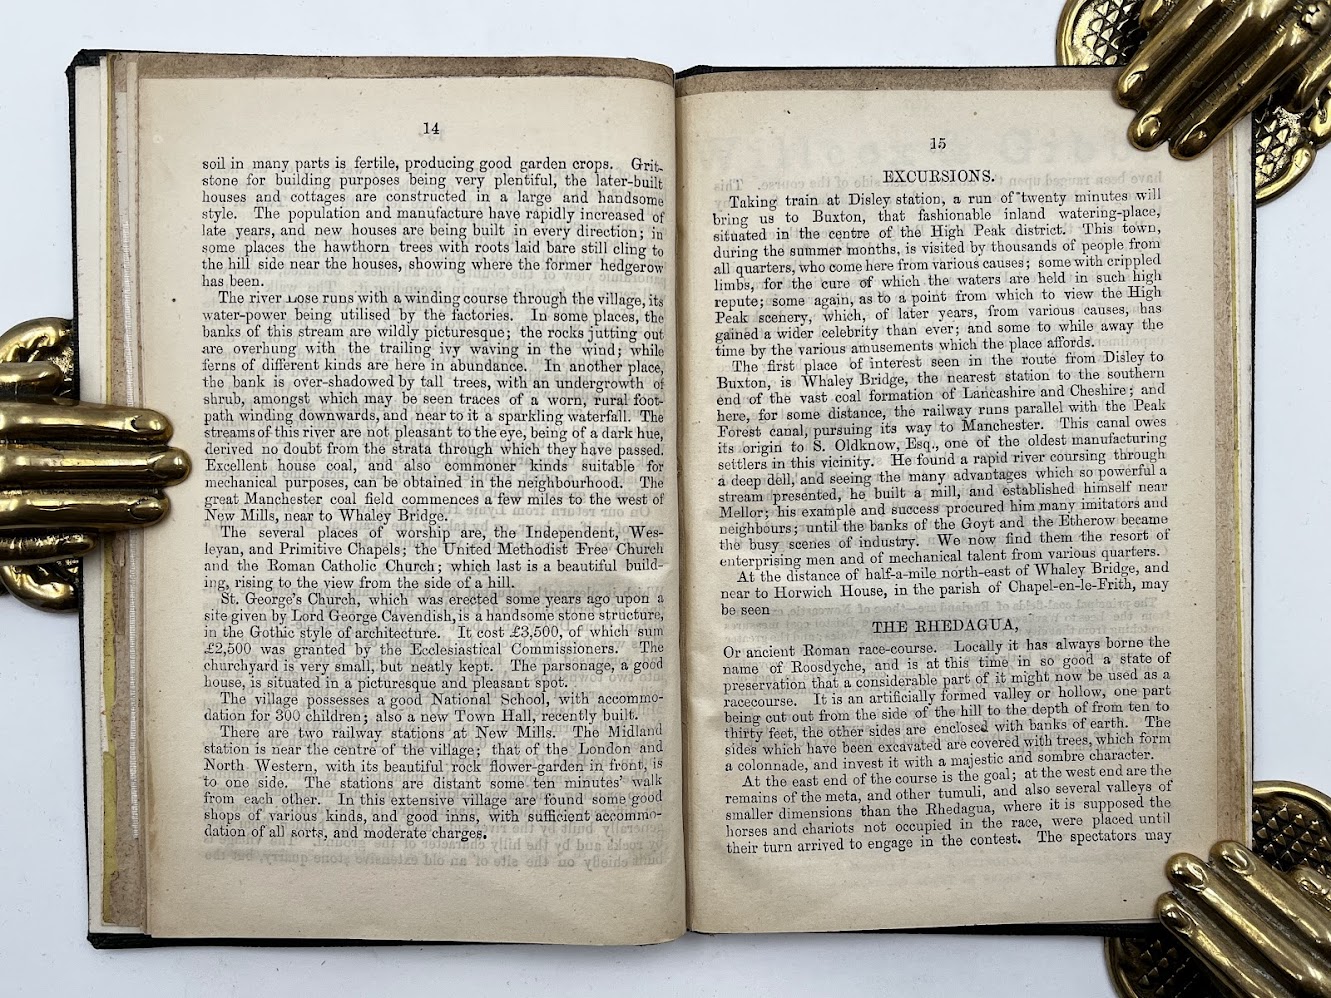 14
soil in many parts is fertile, producing good garden crops. Grit-
stone for building purposes being very plentiful, the later-built
houses and cottages are constructed in a large and handsome
style. The population and manufacture have rapidly increased of
late years, and new houses are being built in every direction; in
some places the hawthorn trees with roots laid bare still cling to
the hill side near the houses, showing where the former hedgerow
has been.
The river Lose runs with a winding course through the village, its
water-power being utilised by the factories. In some places, the
banks of this stream are wildly picturesque; the rocks jutting out
are overhung with the trailing ivy waving in the wind; while
ferns of different kinds are here in abundance. In another place,
the bank is over-shadowed by tall trees, with an undergrowth of
shrub, amongst which may be seen traces of a worn, rural foot-
path winding downwards, and near to it a sparkling waterfall. The
streams of this river are not pleasant to the eye, being of a dark hue,
derived no doubt from the strata through which they have passed.
Excellent house coal, and also commoner kinds suitable for
mechanical purposes, can be obtained in the neighbourhood. The
great Manchester coal field commences a few miles to the west of
New Mills, near to Whaley Bridge.
The several places of worship are, the Independent, Wes-
leyan, and Primitive Chapels; the United Methodist Free Church
and the Roman Catholic Church; which last is a beautiful build-
ing, rising to the view from the side of a hill.
St. George's Church, which was erected some years ago upon a
site given by Lord George Cavendish, is a handsome stone structure,
in the Gothic style of architecture. It cost £3,500, of which sum
£2,500 was granted by the Ecclesiastical Commissioners. The
churchyard is very small, but neatly kept. The parsonage, a good
house, is situated in a picturesque and pleasant spot.
The village possesses a good National School, with accommo-
dation for 300 children; also a new Town Hall, recently built.
There are two railway stations at New Mills. The Midland
station is near the centre of the village; that of the London and
North Western, with its beautiful rock flower-garden in front, is
to one side. The stations are distant some ten minutes' walk
from each other. In this extensive village are found some good
shops of various kinds, and good inns, with sufficient accommo-
dation of all sorts, and moderate charges.
15
EXCURSIONS.
Taking train at Disley station, a run of twenty minutes will
bring us to Buxton, that fashionable inland watering-place,
situated in the centre of the High Peak district. This town,
during the summer months, is visited by thousands of people from
all quarters, who come here from various causes; some with crippled
limbs, for the cure of which the waters are held in such high
repute; some again, as to a point from which to view the High
Peak scenery, which, of later years, from various causes, has
gained a wider celebrity than ever; and some to while away the
time by the various amusements which the place affords.
The first place of interest seen in the route from Disley to
Buxton, is Whaley Bridge, the nearest station to the southern
end of the vast coal formation of Lancashire and Cheshire; and
here, for some distance, the railway runs parallel with the Peak
Forest canal, pursuing its way to Manchester. This canal owes
its origin to S. Oldknow, Esq., one of the oldest manufacturing
settlers in this vicinity. He found a rapid river coursing through
a deep dell, and seeing the many advantages which so powerful a
stream presented, he built a mill, and established himself near
Mellor; his example and success procured him many imitators and
neighbours; until the banks of the Goyt and the Etherow became
the busy scenes of industry. We now find them the resort of
enterprising men and of mechanical talent from various quarters.
At the distance of half-a-mile north-east of Whaley Bridge, and
near to Horwich House, in the parish of Chapel-en-le-Frith, may
be seen
THE RHEDAGUA,
Or ancient Roman race-course. Locally it has always borne the
name of Roosdyche, and is at this time in so good a state of
preservation that a considerable part of it might now be used as a
racecourse. It is an artificially formed valley or hollow, one part
being cut out from the side of the hill to the depth of from ten to
thirty feet, the other sides are enclosed with banks of earth. The
sides which have been excavated are covered with trees, which form
a colonnade, and invest it with a majestic and sombre character.
At the east end of the course is the goal; at the west end are the
remains of the meta, and other tumuli, and also several valleys of
smaller dimensions than the Rhedagua, where it is supposed the
horses and chariots not occupied in the race, were placed until
their turn arrived to engage in the contest. The spectators may